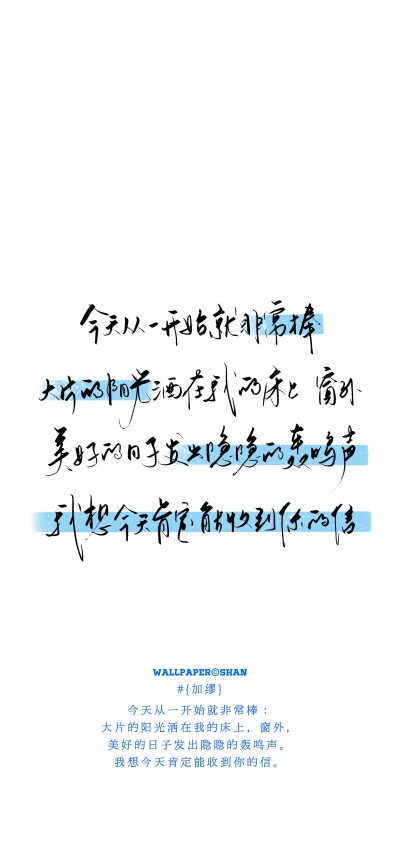 今天从一开始就非常棒
大片的阳光洒在我的床上 窗外
美好的日子发出隐隐的轰鸣声
我想今天肯定能收到你的信
WALLPAPER©SHAN
#{加缪}
今天从一开始就非常棒：
大片的阳光洒在我的床上，窗外，
美好的日子发出隐隐的轰鸣声。
我想今天肯定能收到你的信。